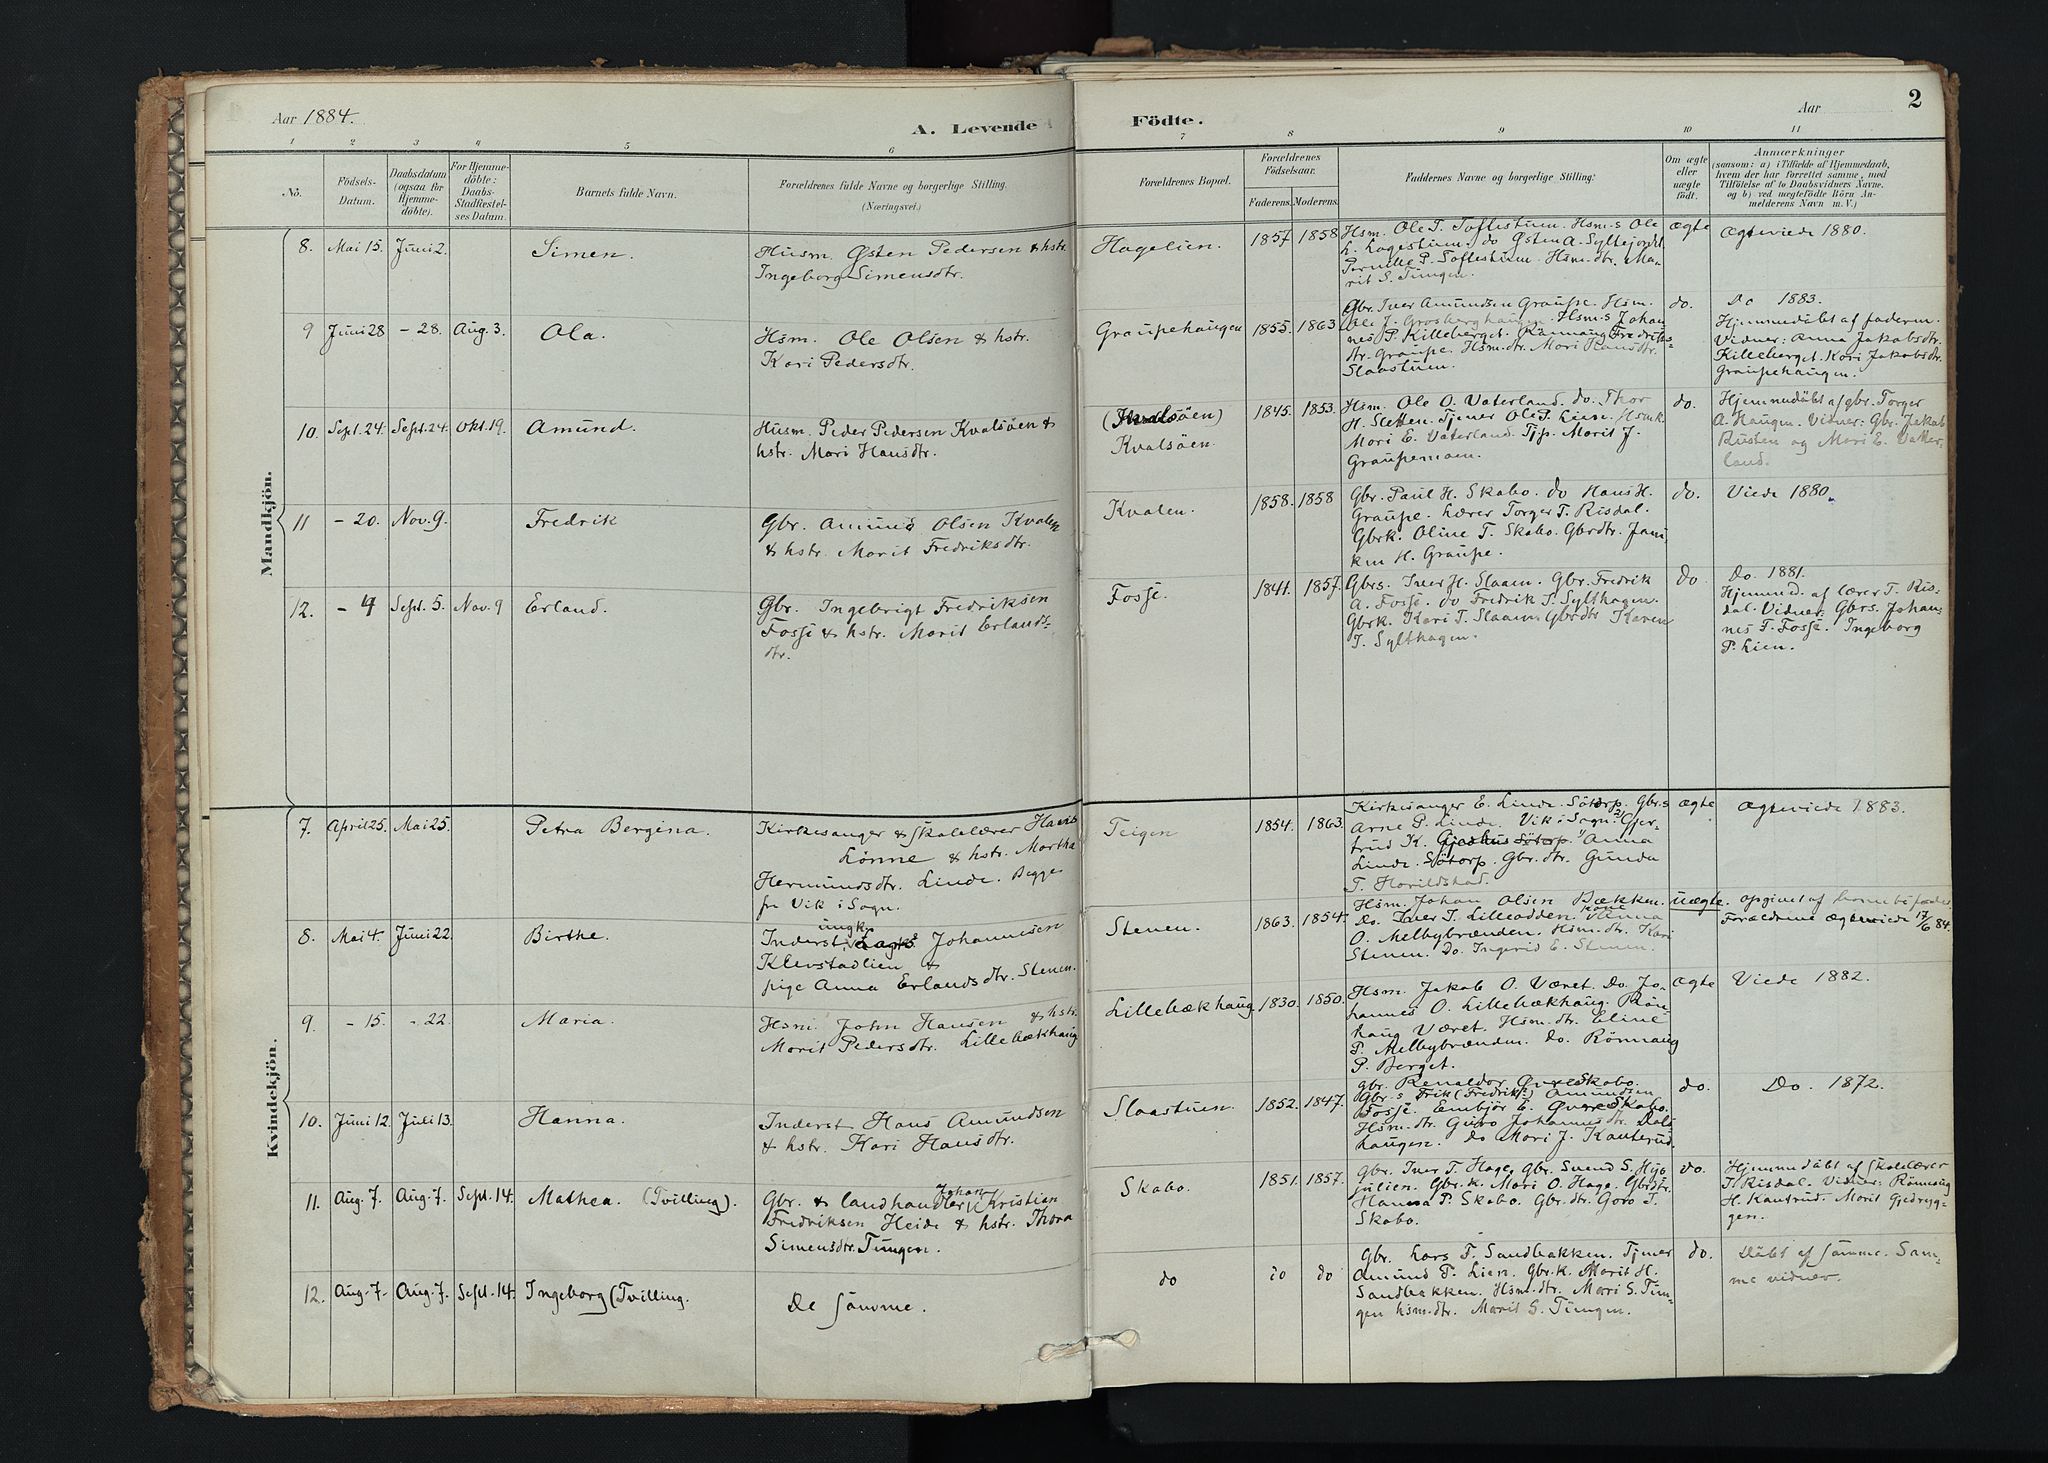 Aar 1884.
A. Levende
Födte.
Aar
2
1 2 3 4 5 6 7 8 9 10 11
No.
Födsels-
Datum.
Daabsdatum
(ogsaa for
Hjemme-
döbte).
For Hjemme-
döbte:
Daabs-
Stadfæstel-
ses Datum.
Barnets fulde Navn.
Forældrenes fulde Navne og borgerlige Stilling.
(Næringsvei.)
Forældrenes Bopæl.
Forældrenes
Födselsaar.
Faderens. Moderens.
Faddernes Navne og borgerlige Stilling:
Om ægte
eller
uægte
født.
Anmærkninger
(saasom: a) i Tilfælde af Hjemmedaab,
hvem der har forrettet samme, med
Tilföielse af to Daabsvidners Navne,
og b) ved uægtefödte Börn An-
melderens Navn m. V.)
Mandkjön.
8. Mai 15. Juni 2. Simen.
Husm. Østen Pedersen & hstr.
Ingeborg Simensdtr.
Hagelien. 1857. 1858
Hsm. Ole T. Toftestuen. Hsm.s Ole
L. Lagestuen. do Østen A. Syltejordet
Pernille P. Toftestuen. Hsm.dtr. Ma-
rit S. Tungen.
ægte
Ægteviede 1880.
9 Juni 28 - 28. Aug. 3. Ola.
Hsm. Ole Olsen & hstr.
Kari Pedersdtr.
Graupehaugen 1855. 1863
Gbr. Iver Amundsen Graupe. Hsm.
Ole J. Grosberghaugen. Hsm.s Johan-
nes P. Killeberget. Rønnaug Fredriks-
dtr. Graupe. Hsm.dtr. Mari Hansdtr.
Slaastuen.
do.
Do 1883.
Hjemmedøbt af faderen.
Vidner: Anna Jakobsdtr.
Killeberget. Kari Jakobsdtr.
Graupehaugen.
10. Sept. 24. Sept. 24. Okt. 19. Amund.
Husm. Peder Pedersen Kvalsøen &
hstr. Mari Hansdtr.
Kvalsøen.
1845. 1853.
Hsm. Ole O. Vaterland. do. Thor
H. Sletten. Tjener Ole P. Liese. Hsmk
Mari E. Vaterland. Tjp. Marit J.
Graupemoen.
do.
Hjemmedøbt af gbr. Torger
A. Haugen. Vidner: Gbr. Jakob
Rusten og Mari E. Vatter-
land.
11 - 20. Nov. 9. Fredrik
Gbr. Amund Olsen Kvalen
& hstr. Marit Fredriksdtr.
Kvalen. 1858. 1858
Gbr. Paul H. Skabo. do Hans H.
Graupe. Lærer Torger T. Risdal.
Gbrk. Oline T. Skabo. Gbrdtr. Jani
ken H. Graupe.
do.
Viede 1880.
12. - 4 Sept. 5. Nov. 9 Erland.
Gbr. Ingebrigt Fredriksen
Fosse & hstr. Marit Erlands-
dtr.
Fosse. 1844. 1857.
Gbrs. Iver H. Slaaen. Gbr. Fredrik
A. Fosse. do Fredrik T. Sylthagen.
Gbrk. Kari T. Slaaen. Gbrdtr Karen
T. Sylthagen.
do
Do. 1881.
Hjemmed. af lærer T. Ris-
dal. Vidner: Gbrs. Johan-
nes F. Fosse. Ingeborg
P. Lien.
Kvindekjön.
7. April 25. Mai 25. Petra Bergina.
Kirkesanger & skolelærer Hans
Lønne & hstr. Martha
Hermundsdtr. Linde. Begge
fra Vik i Sogn.
Teigen 1854. 1863.
Kirkesanger E. Linde. Søtorp. Gbr.s
Arne P. Linde. Vik i Sogn. Gjer-
trud K. Anna
Linde. Søtorp. Gbr.dtr. Gunda
T. Harildstad.
ægte
Ægteviede 1883.
8. Mai 4. Juni 22. Birthe.
ungk.
Inderst Johannesen
Klevstadlien &
pige Anna Erlandsdtr. Stenen.
Stenen. 1863. 1854.
Hsm. Johan Olsen Bækken.
Do. Iver T. Lilleodden. kone Anna
O. Melbybrænden. Hsm.dtr. Kari
Stenen. Do. Ingerid E. Stenen.
uægte.
opgivet af barnefader.
Forældrene ægteviede 17/6 84.
9. - 15. - 22. Maria.
Hsm. John Hansen & hstr.
Marit Pedersdtr. Lillebækhaug
Lillebækhaug 1830. 1850.
Hsm. Jakob O. Været. Do. Jo-
hannes O. Lillebækhaug. Røn-
haug Været. Hsm.dtr. Eline
P. Melbybrænden. do. Rønnaug
P. Berget.
ægte
Viede 1882.
10. Juni 12. Juli 13. Hanna.
Inderst Hans Amundsen
& hstr. Kari Hansdtr.
Slaastuen. 1852. 1847.
Gbr. Renaldor Øvre Skabo.
Gbr.s Frik (Fredrik?) Amundsen
Fosse. Embjør E. Øvre Skabo.
Hsm.dtr. Guro Johannesdtr. Dals-
haugen. do Mari J. Kanterud.
do.
Do. 1872.
11. Aug. 7. Aug. 7. Sept. 14. Mathea. (Tvilling).
Gbr. & landhandler Johan Kristian
Fredriksen Heide & hstr. Thora
Simensdtr. Tungen.
Skabo. 1851. 1857.
Gbr. Iver T. Hage. Gbr. Svend S. Myo
julien. Gbr.k. Mari O. Hage. Gbrdtr.
Hanna P. Skabo. Gbr.dtr. Goro T.
Skabo.
do.
Hjemmedøbt af skolelærer
T. Risdal. Vidner: Rønnaug
H. Kantrud. Marit Gjedryg-
gen.
12. Aug. 7. Aug. 7. Sept. 14. Ingeborg (Tvilling.
De samme.
do do do
Gbr. Lars T. Sandbakken. Tjener
Amund T. Lien. Gbr.k. Marit H.
Sandbakken. Hsm.dtr. Mari S. Tun-
gen hsm.dtr. Marit S. Tungen.
do.
Døbt af samme. Sam-
me vidner.